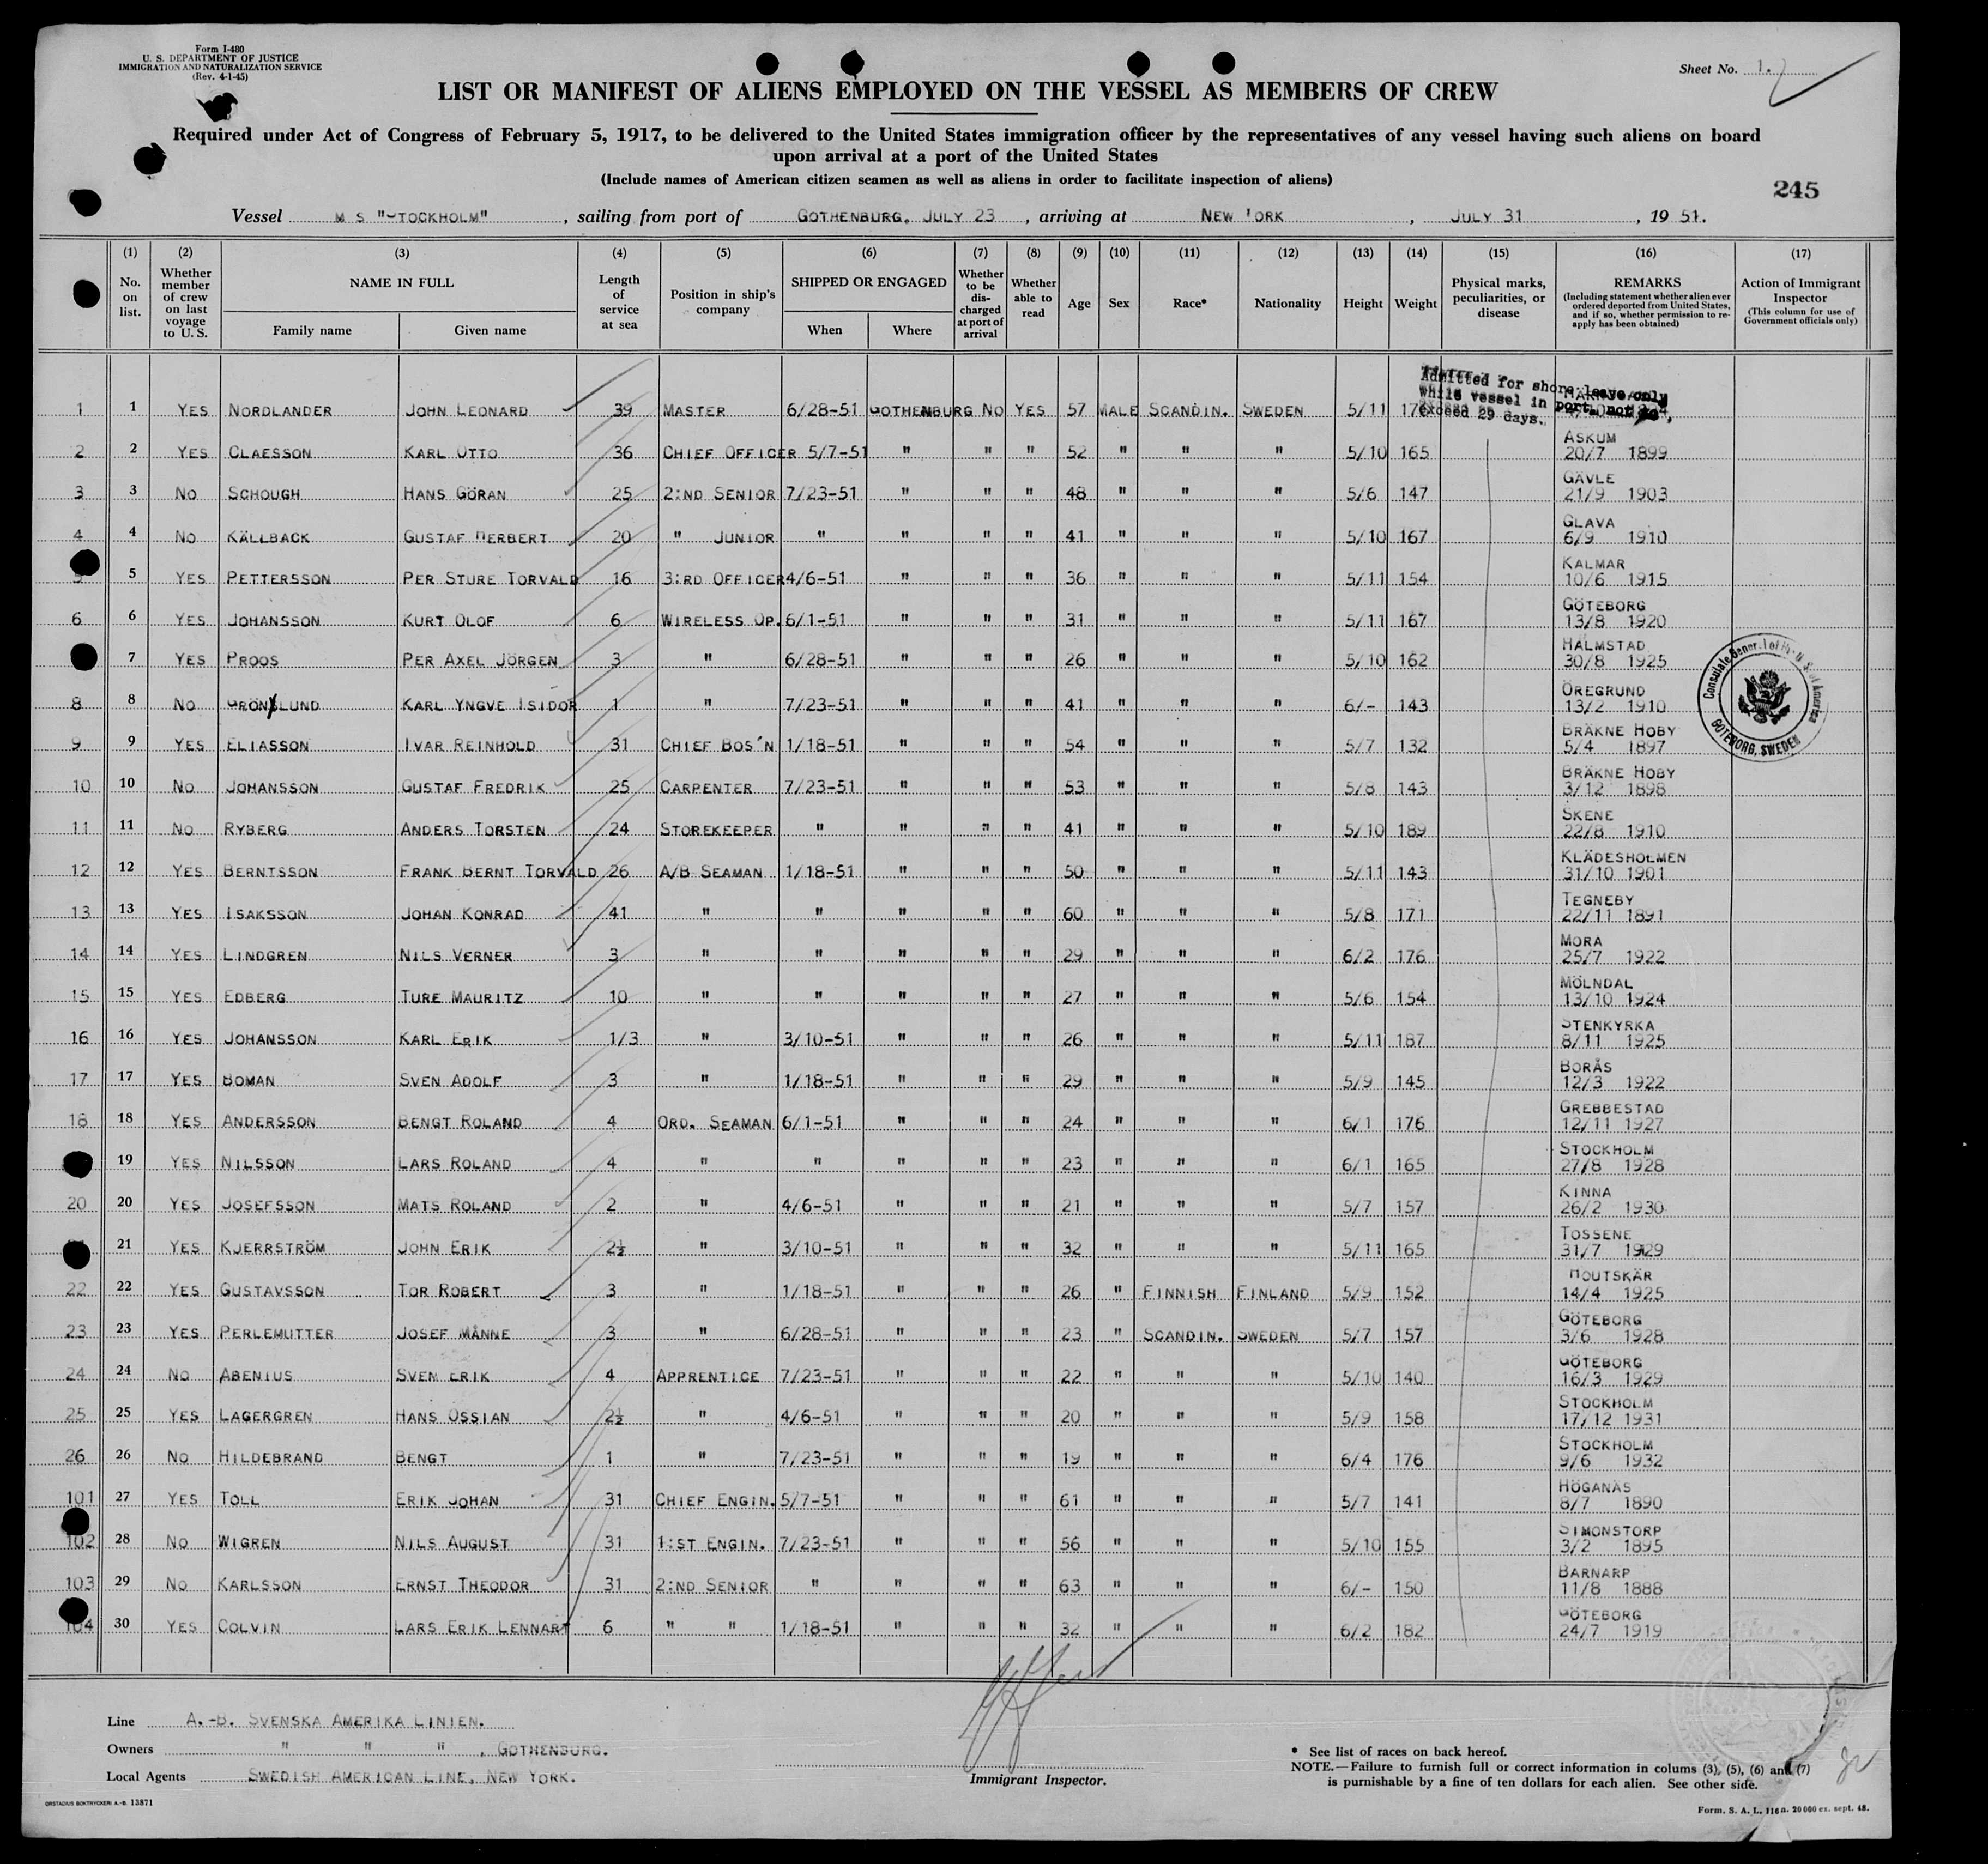 Form I-480
U. S. DEPARTMENT OF JUSTICE
IMMIGRATION AND NATURALIZATION SERVICE
(Rev. 4-1-45)
Sheet No. 1.
LIST OR MANIFEST OF ALIENS EMPLOYED ON THE VESSEL AS MEMBERS OF CREW
Required under Act of Congress of February 5, 1917, to be delivered to the United States immigration officer by the representatives of any vessel having such aliens on board
upon arrival at a port of the United States
(Include names of American citizen seamen as well as aliens in order to facilitate inspection of aliens)
245
Vessel M S "STOCKHOLM", sailing from port of GOTHENBURG, JULY 23, arriving at NEW YORK, JULY 31, 19 51.
(1) (2) (3) (4) (5) (6) (7) (8) (9) (10) (11) (12) (13) (14) (15) (16) (17)
No. on list. Whether member of crew on last voyage to U. S. NAME IN FULL Family name Given name Length of service at sea Position in ship's company SHIPPED OR ENGAGED When Where Whether to be discharged at port of arrival Whether able to read Age Sex Race* Nationality Height Weight Physical marks, peculiarities, or disease REMARKS (Including statement whether alien ever ordered deported from United States, and if so, whether permission to re-apply has been obtained) Action of Immigrant Inspector (This column for use of Government officials only)
Admitted for shore leave only
while vessel in port, not to
exceed 29 days.
1 1 YES NORDLANDER JOHN LEONARD 39 MASTER 6/28-51 GOTHENBURG NO YES 57 MALE SCANDIN. SWEDEN 5/11
2 2 YES CLAESSON KARL OTTO 36 CHIEF OFFICER 5/7-51 " " " 52 " " " 5/10 165 ASKUM 20/7 1899
3 3 NO SCHOUGH HANS GÖRAN 25 2:ND SENIOR 7/23-51 " " " 48 " " " 5/6 147 GÄVLE 21/9 1903
4 4 NO KÄLLBACK GUSTAF HERBERT 20 " JUNIOR " " " " 41 " " " 5/10 167 GLAVA 6/9 1910
5 5 YES PETTERSSON PER STURE TORVALD 16 3:RD OFFICER 4/6-51 " " " 36 " " " 5/11 154 KALMAR 10/6 1915
6 6 YES JOHANSSON KURT OLOF 6 WIRELESS OP. 6/1-51 " " " 31 " " " 5/11 167 GÖTEBORG 13/8 1920
7 YES PROOS PER AXEL JÖRGEN 3 " 6/28-51 " " " 26 " " " 5/10 162 HALMSTAD 30/8 1925
8 8 NO GRÖNLUND KARL YNGVE ISIDOR 1 " 7/23-51 " " " 41 " " " 6/- 143 ÖREGRUND 13/2 1910
9 9 YES ELIASSON IVAR REINHOLD 31 CHIEF BOS'N 1/18-51 " " " 54 " " " 5/7 132 BRÄKNE HOBY 5/4 1897
10 10 NO JOHANSSON GUSTAF FREDRIK 25 CARPENTER 7/23-51 " " " 53 " " " 5/8 143 BRÄKNE HOBY 3/12 1898
11 11 NO RYBERG ANDERS TORSTEN 24 STOREKEEPER " " " " 41 " " " 5/10 189 SKENE 22/8 1910
12 12 YES BERNTSSON FRANK BERNT TORVALD 26 A/B SEAMAN 1/18-51 " " " 50 " " " 5/11 143 KLÄDESHOLMEN 31/10 1901
13 13 YES ISAKSSON JOHAN KONRAD 41 " " " " " 60 " " " 5/8 171 TEGNEBY 22/11 1891
14 14 YES LINDGREN NILS VERNER 3 " " " " " 29 " " " 6/2 176 MORA 25/7 1922
15 15 YES EDBERG TURE MAURITZ 10 " " " " " 27 " " " 5/6 154 MÖLNDAL 13/10 1924
16 16 YES JOHANSSON KARL ERIK 1/3 " 3/10-51 " " " 26 " " " 5/11 187 STENKYRKA 8/11 1925
17 17 YES BOMAN SVEN ADOLF 3 " 1/18-51 " " " 29 " " " 5/9 145 BORÅS 12/3 1922
18 18 YES ANDERSSON BENGT ROLAND 4 ORD. SEAMAN 6/1-51 " " " 24 " " " 6/1 176 GREBBESTAD 12/11 1927
19 YES NILSSON LARS ROLAND 4 " " " " " 23 " " " 6/1 165 STOCKHOLM 27/8 1928
20 20 YES JOSEFSSON MATS ROLAND 2 " 4/6-51 " " " 21 " " " 5/7 157 KINNA 26/2 1930
21 YES KJERRSTRÖM JOHN ERIK 2½ " 3/10-51 " " " 32 " " " 5/11 165 TOSSENE 31/7 1929
22 22 YES GUSTAVSSON TOR ROBERT 3 " 1/18-51 " " " 26 " FINNISH FINLAND 5/9 152 HOUTSKÄR 14/4 1925
23 23 YES PERLEMUTTER JOSEF MÄNNE 3 " 6/28-51 " " " 23 " SCANDIN. SWEDEN 5/7 157 GÖTEBORG 3/6 1928
24 24 NO ABENIUS SVEN ERIK 4 APPRENTICE 7/23-51 " " " 22 " " " 5/10 140 GÖTEBORG 16/3 1929
25 25 YES LAGERGREN HANS OSSIAN 2½ " 4/6-51 " " " 20 " " " 5/9 158 STOCKHOLM 17/12 1931
26 26 NO HILDEBRAND BENGT 1 " 7/23-51 " " " 19 " " " 6/4 176 STOCKHOLM 9/6 1932
101 27 YES TOLL ERIK JOHAN 31 CHIEF ENGIN. 5/7-51 " " " 61 " " " 5/7 141 HÖGANÄS 8/7 1890
102 28 NO WIGREN NILS AUGUST 31 1:ST ENGIN. 7/23-51 " " " 56 " " " 5/10 155 SIMONSTORP 3/2 1895
103 29 NO KARLSSON ERNST THEODOR 31 2:ND SENIOR " " " " 63 " " " 6/- 150 BARNARP 11/8 1888
104 30 YES COLVIN LARS ERIK LENNART 6 " " 1/18-51 " " " 32 " " " 6/2 182 GÖTEBORG 24/7 1919
Consulate General of the U. S. of America
GOTEBORG, SWEDEN
Line A.-B. SVENSKA AMERIKA LINIEN.
Owners " " ", GOTHENBURG.
Local Agents SWEDISH AMERICAN LINE, NEW YORK.
Immigrant Inspector.
* See list of races on back hereof.
NOTE.—Failure to furnish full or correct information in colums (3), (5), (6) and (7)
is punishable by a fine of ten dollars for each alien. See other side.
ORSTADIUS BOKTRYCKERI A.-B. 13871
Form. S. A. L. 116 a. 20 000 ex. sept. 48.